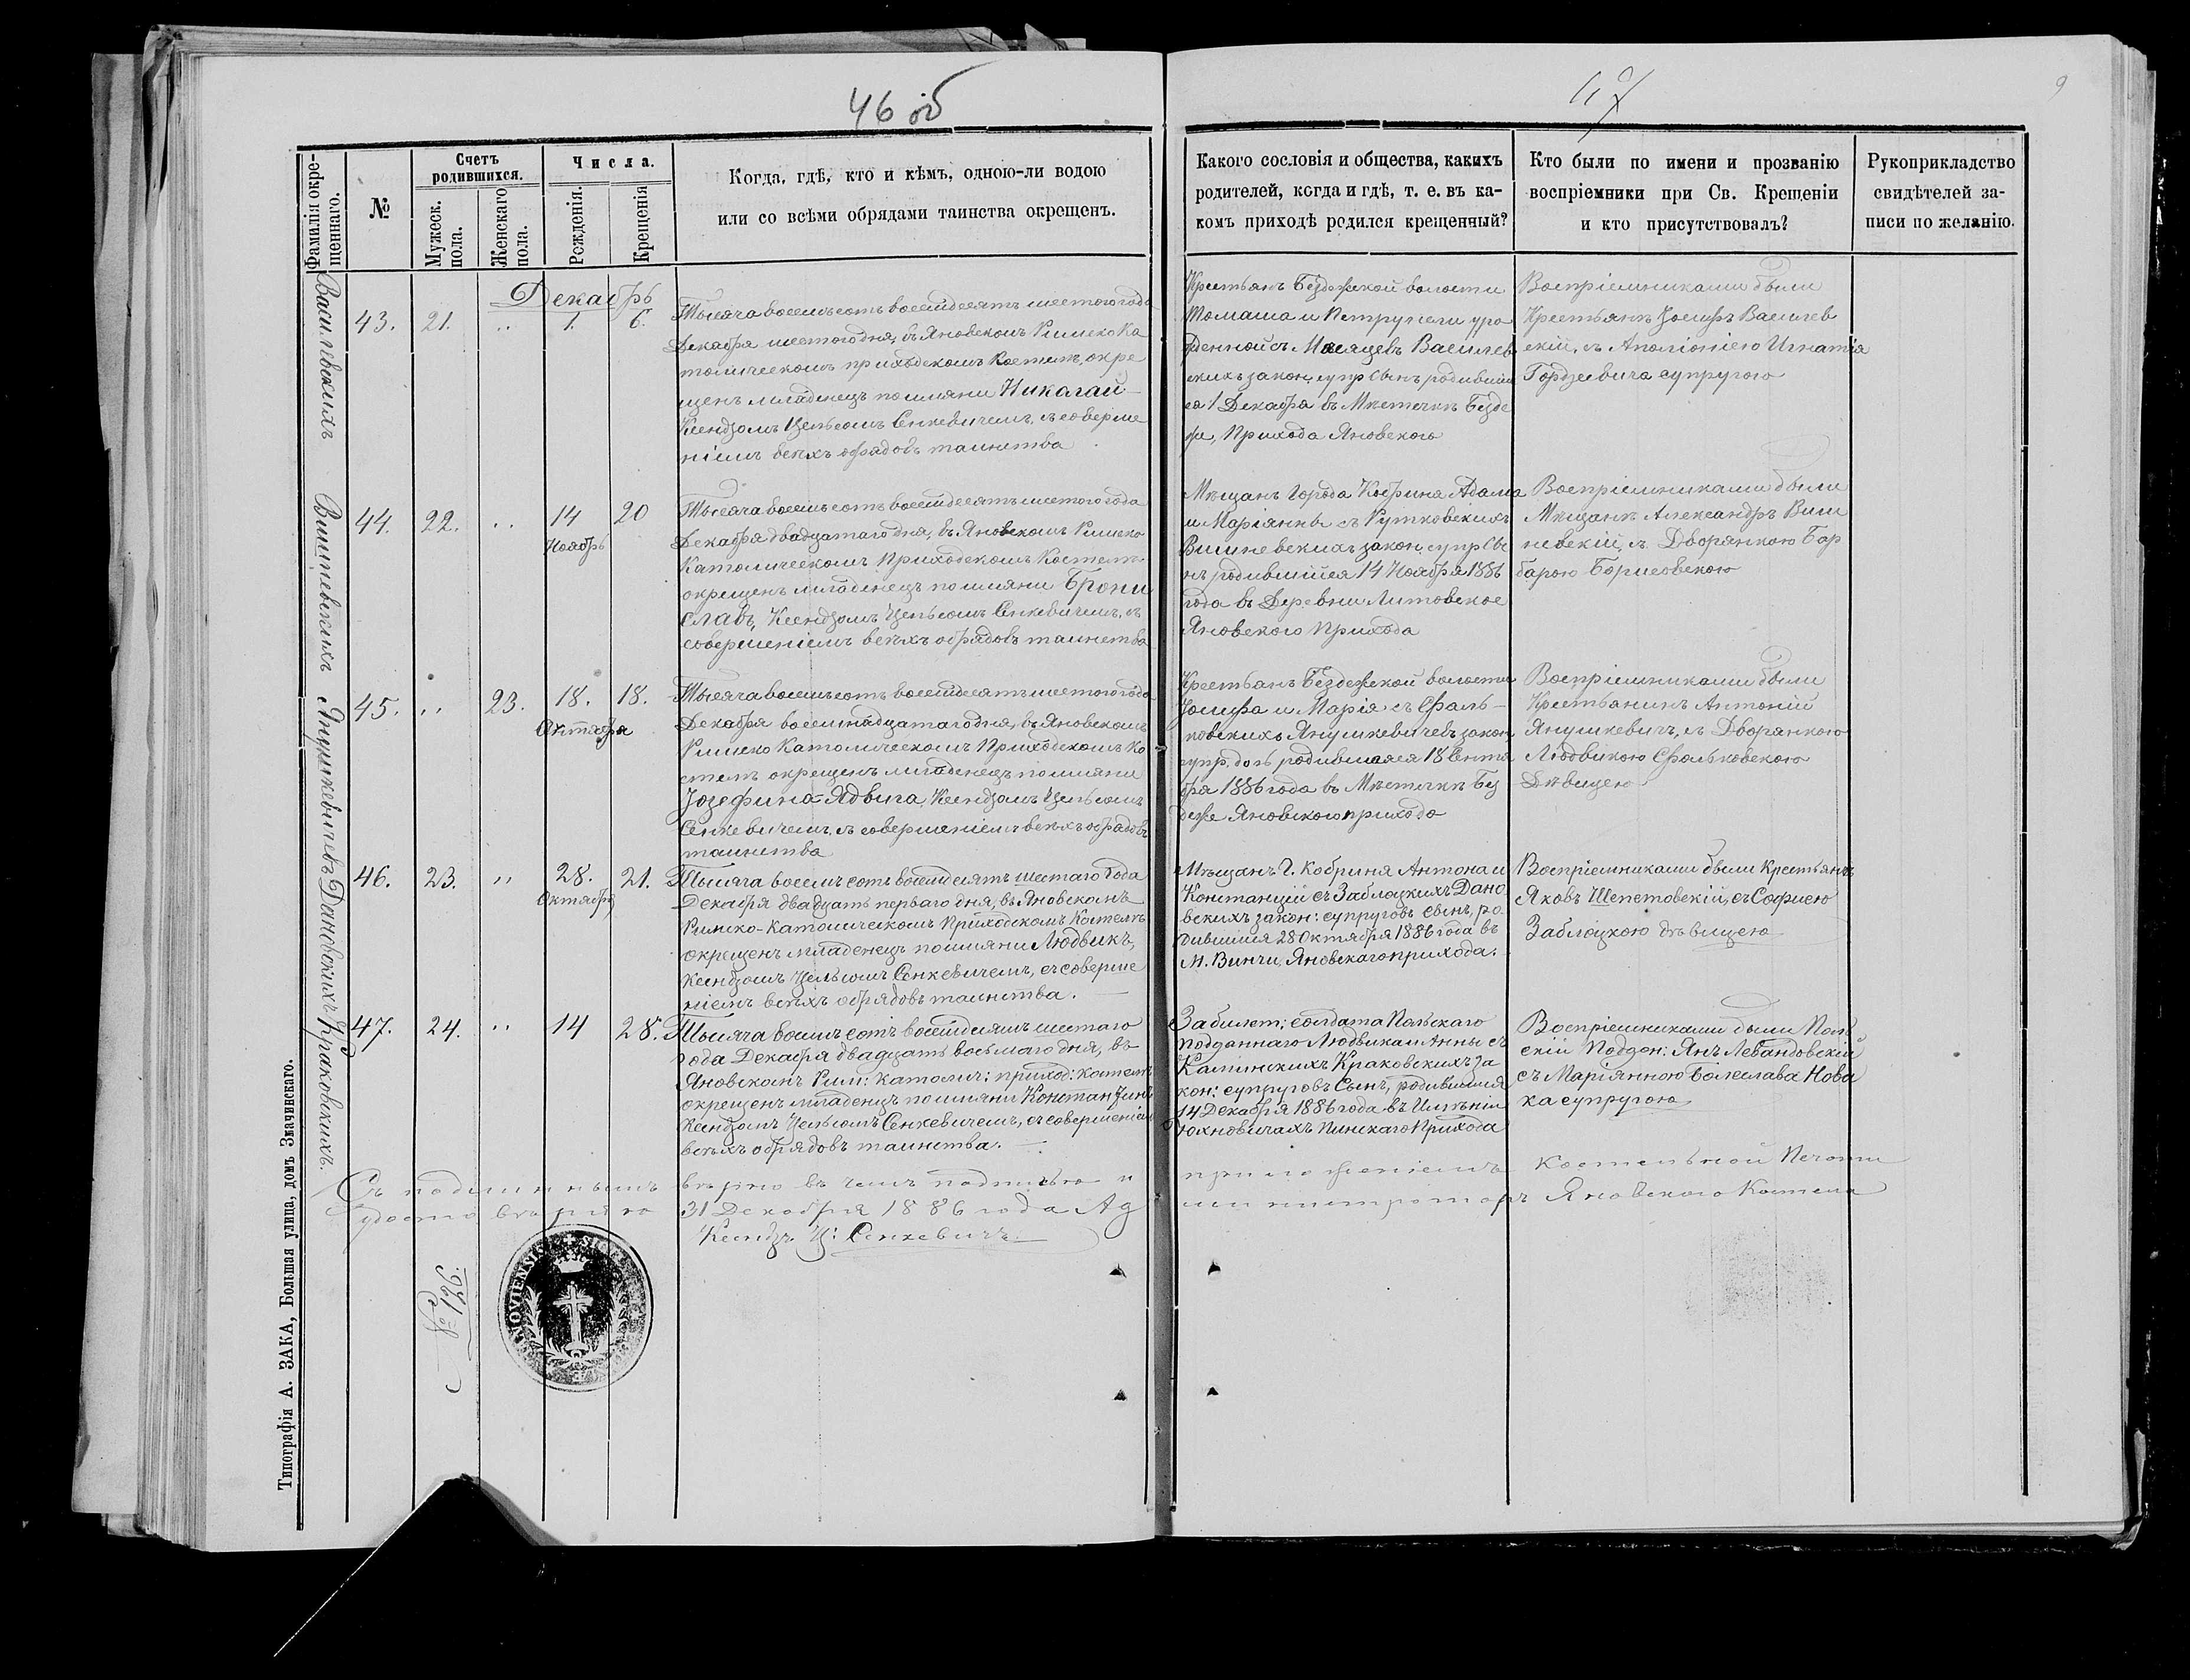 46 об
47
9
Фамилія окрещеннаго.
№
Счетъ родившихся.
Мужеск. пола.
Женскаго пола.
Числа.
Рожденія.
Крещенія
Когда, гдѣ, кто и кѣмъ, одною-ли водою
или со всѣми обрядами таинства окрещенъ.
Какого сословія и общества, какихъ
родителей, когда и гдѣ, т. е. въ ка-
комъ приходѣ родился крещенный?
Кто были по имени и прозванію
воспріемники при Св. Крещеніи
и кто присутствовалъ?
Рукоприкладство
свидѣтелей за-
писи по желанію.
Декабрь
Василевскихъ
43. 21. „ 1. 6.
Тысяча восемьсотъ восемдесятъ шестого года
Декабря шестого дня, въ Яновскомъ Римско Ка
толическомъ приходскомъ Костелѣ, окре
щенъ младенецъ поимяни Николай
Ксендзомъ Цельсомъ Сенкевичемъ, съ соверше
ніемъ всѣхъ обрядовъ таинства
Крестьянъ Бездежской волости
Томаша и Петрунели уро
жденной съ Мисяцевъ Василев
скихъ закон. супр. Сынъ родивший
ся 1 Декабря въ Местечкѣ Безде
жи, Прихода Яновского
Воспріемниками были
Крестьянъ Іосифъ Василев
скій, съ Аполіоніею Игнатія
Гордзеевича супругою
Вишневскихъ
44. 22. „ 14 20
Ноябрь
Тысяча восемьсотъ восемдесятъ шестого года
Декабря двадцатаго дня, въ Яновскомъ Римско
Католическомъ Приходскомъ Костелѣ
окрещенъ младенецъ поимяни Брони
славъ, Ксендзомъ Цельсомъ Сенкевичемъ, съ
совершеніемъ всѣхъ обрядовъ таинства
Мѣщанъ Города Кобрина Адама
и Маріянны съ Рутковскихъ
Вишневскихъ закон. супр. Сы
нъ родившійся 14 Ноября 1886
года въ Деревни Литовское
Яновского Прихода
Воспріемниками были
Мѣщанъ Александръ Виш
невскій, съ Дворянкою Бар
барою Борисовскою
Янушкевичевъ
45. „ 23. 18. 18.
Октября
Тысяча восемьсотъ восемдесятъ шестого года
Декабря восемнадцатаго дня, въ Яновскомъ
Римско Католическомъ Приходскомъ Ко
стелѣ окрещенъ младенецъ поимяни
Іозефина-Ядвига, Ксендзомъ Цельсомъ
Сенкевичемъ, съ совершеніемъ всѣхъ обрядовъ
таинства
Крестьянъ Бездежской волости
Іосифа и Марія съ Фаль-
ковскихъ Янушкевичевъ закон
супр. дочь родившаяся 18 Сентя
бря 1886 года въ Мѣстечкѣ Без
деже Яновского прихода
Воспріемниками были
Крестьянинъ Антоній
Янушкевичъ, съ Дворянкою
Людвикою Фальковскою
Дѣвицею
Дановскихъ
46. 23. „ 28. 21.
Октября
Тысяча восемьсотъ восемдесятъ шестаго года
Декабря двадцать перваго дня, въ Яновскомъ
Римско-Католическомъ Приходскомъ Костелѣ
окрещенъ младенецъ поимяни Людвикъ,
Ксендзомъ Цельсомъ Сенкевичемъ, съ соверше
ніемъ всѣхъ обрядовъ таинства.
Мѣщанъ Г. Кобрина Антона и
Констанціи съ Заблоцкихъ Дано
вскихъ закон: супруговъ сынъ, ро-
дившійся 28 Октября 1886 года въ
М. Винчи, Яновскаго прихода.
Воспріемниками были Крестьянъ
Яковъ Шепетовскій, съ Софиею
Заблоцкою дѣвицею
Краковскихъ.
47. 24. „ 14 28.
Тысяча восемьсотъ восемдесятъ шестаго
года Декабря двадцать восьмаго дня, въ
Яновскомъ Рим: католич: приход: костелѣ
окрещенъ младенецъ поимяни Константинъ
Ксендзомъ Цельсомъ Сенкевичемъ, съ совершеніемъ
всѣхъ обрядовъ таинства.
Забилет: солдата Польскаго
подданнаго Людвика и Анны съ
Каминскихъ Краковскихъ за
кон: супруговъ Сынъ, родившійся
14 Декабря 1886 года въ Имѣніи
Юхновичахъ Пинскаго Прихода
Воспріемниками были Поль
скій Поддан: Янъ Левандовскій
съ Маріянною Болеслава Нова
ка супругою
Съ подлиннымъ вѣрно въ чемъ подписью и приложеніемъ костельной Печати
удостовѣряю 31 Декабря 1886 года Администраторъ Яновского Костела
Ксендзъ Ц: Сенкевичъ
№ 126.
Типографія А. ЗАКА, Большая улица, домъ Значинскаго.